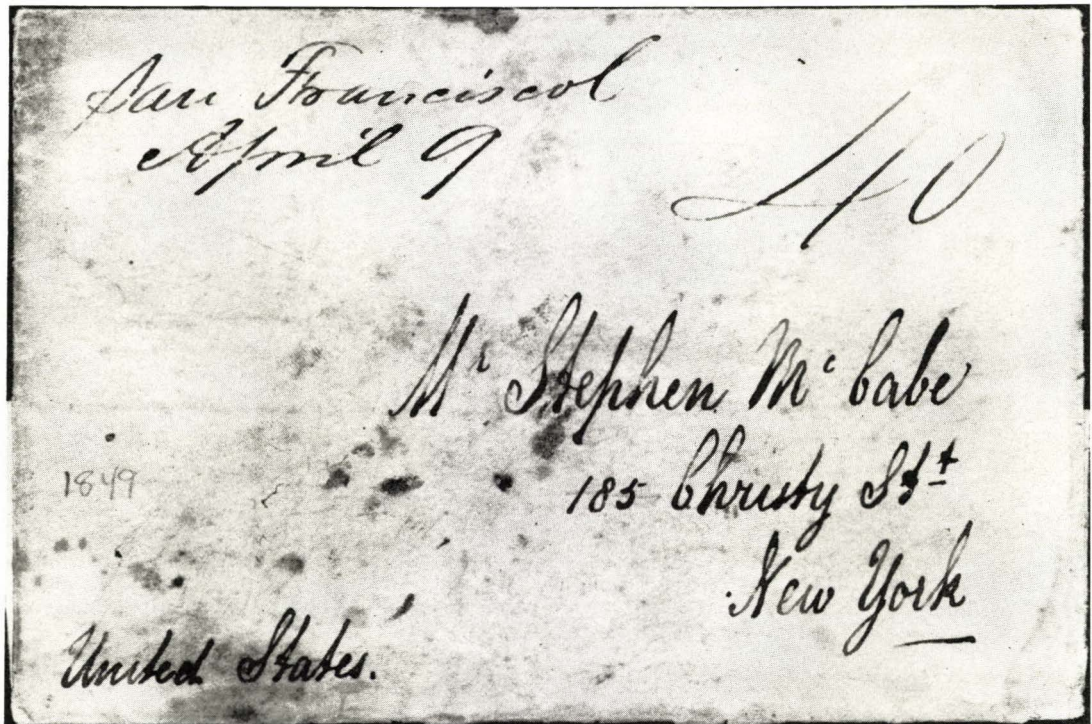 San Francisco
April 9
40
Mr Stephen Mc Cabe
185 Christy Stt
New York
1849
United States.